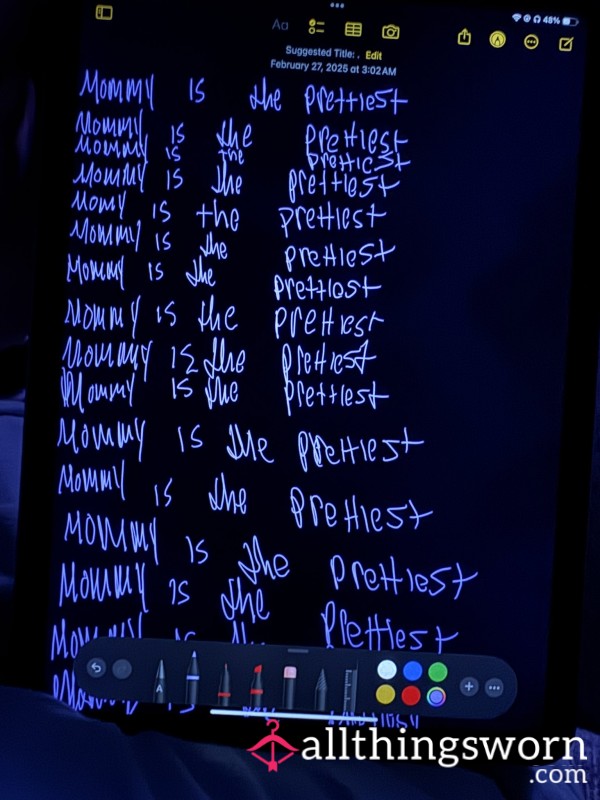 48%
Aa
Suggested Title: . Edit
February 27, 2025 at 3:02 AM
Mommy is the prettiest
Mommy is the prettiest
Mommy is the prettiest
Mommy is the prettiest
Momy is the prettiest
Mommy is the prettiest
Mommy is the prettiest
Mommy is the prettiest
Mommy is the prettiest
Mommy is the prettiest
Mommy is the prettiest
Mommy is the prettiest
Mommy is the prettiest
Mommy is the prettiest
Mommy is the prettiest
A
allthingsworn
.com